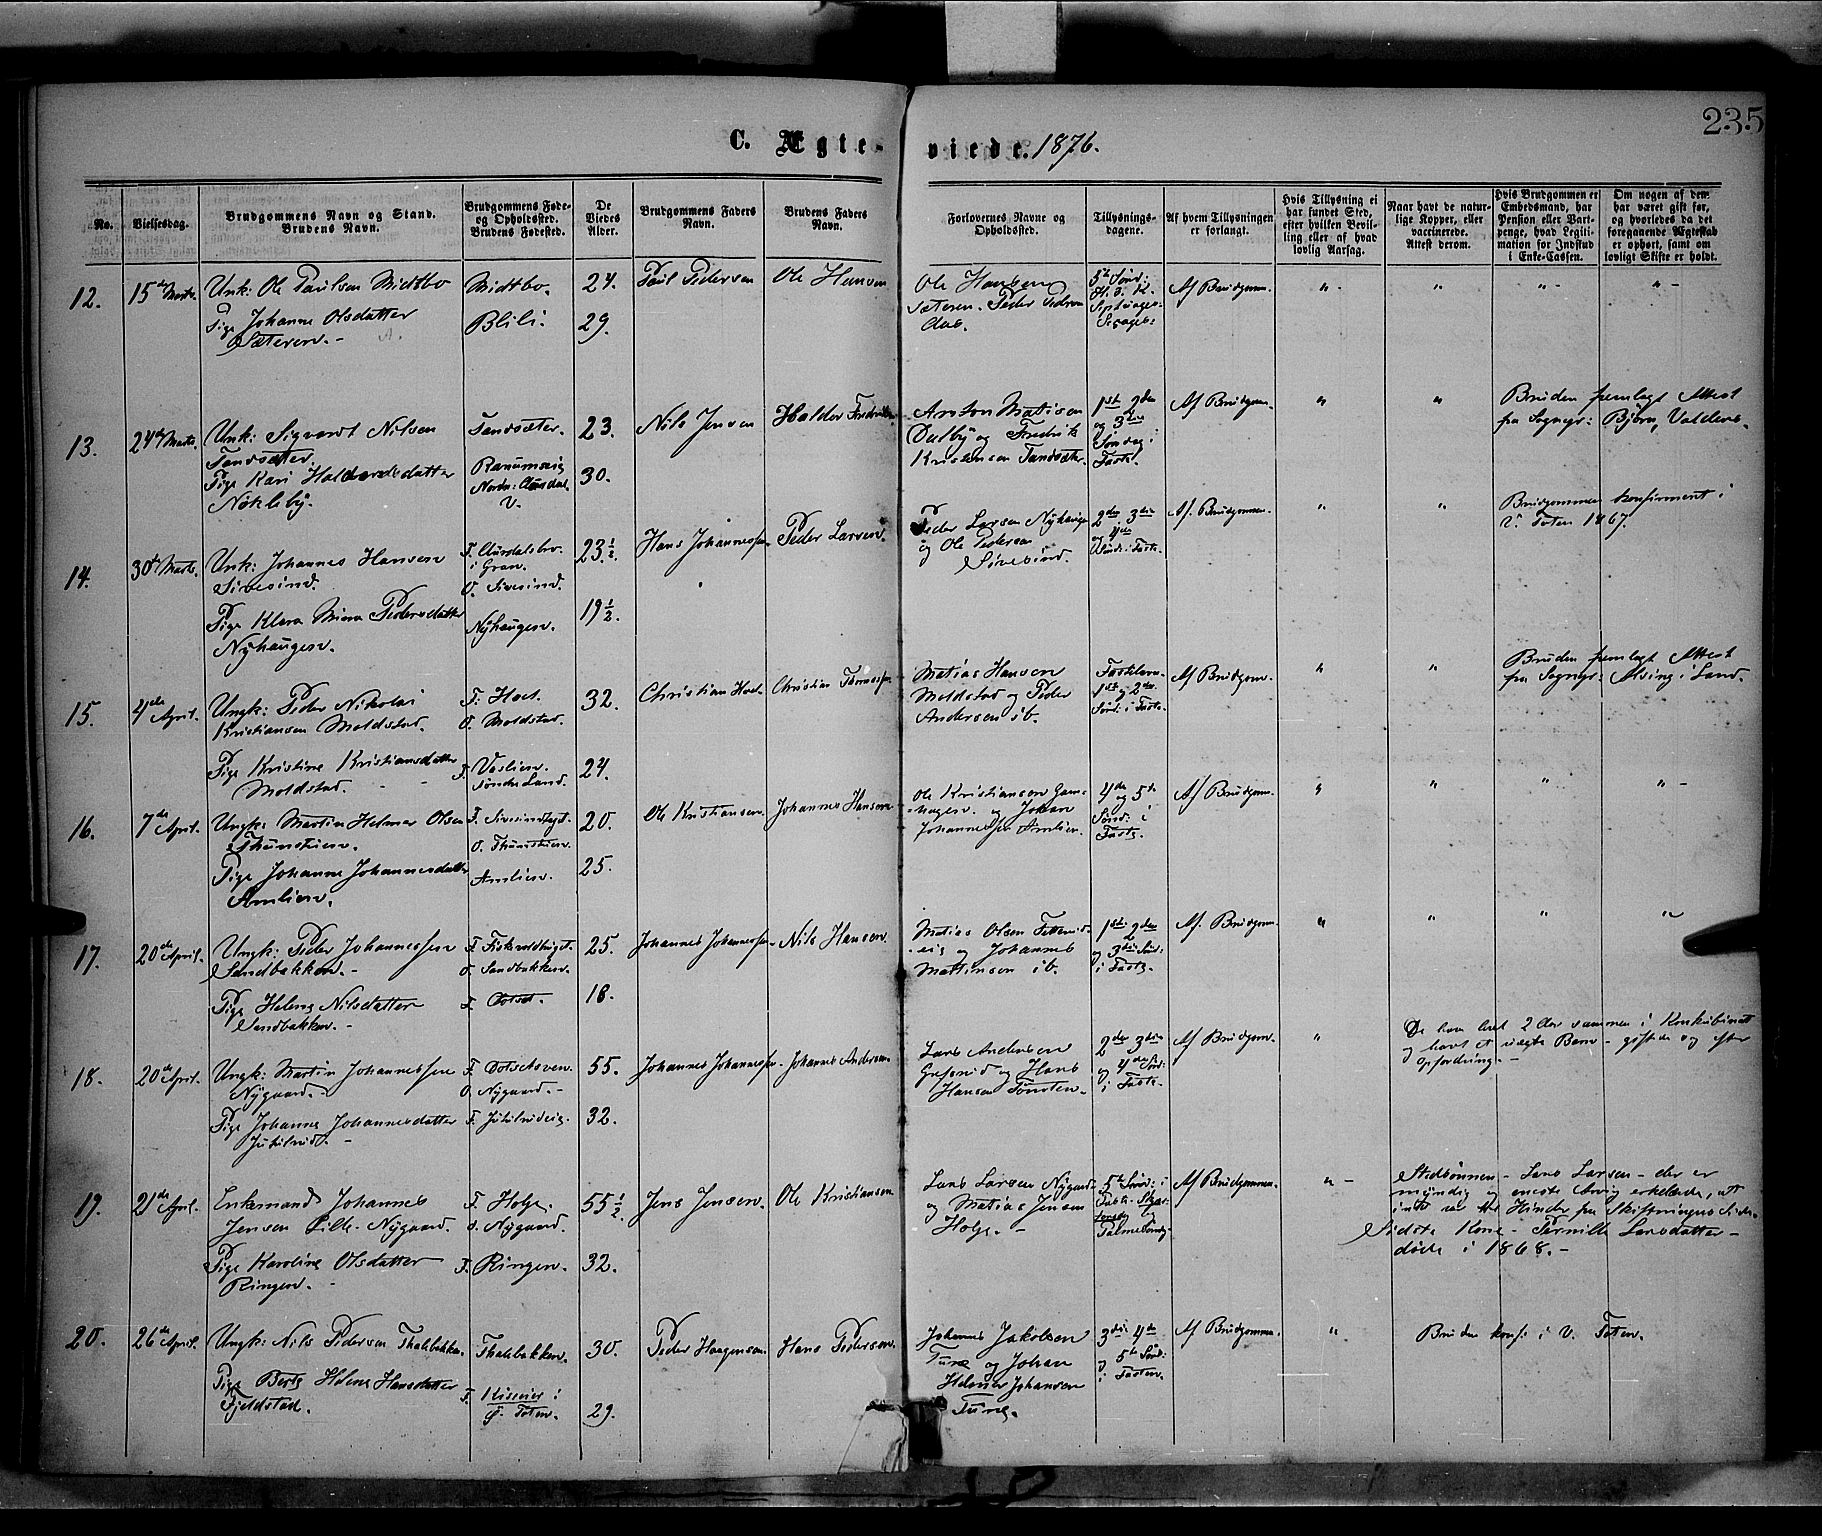 235
C. Ægte- viede. 1876.
No.
Vielsesdag.
Brudgommens Navn og Stand.
Brudens Navn.
Brudgommens Føde-
og Opholdssted.
Brudens Fødested.
De
Viedes
Alder.
Brudgommens Faders
Navn.
Brudens Faders
Navn.
Forlovernes Navne og
Opholdssted.
Tillysnings-
dagene.
Af hvem Tillysningen
er forlangt.
Hvis Tillysning ei
har fundet Sted,
efter hvilken Bevil-
ling eller af hvad
lovlig Aarsag.
Naar havt de natur-
lige Kopper, eller
vaccinerede.
Attest derom.
Hvis Brudgommen er
Embedsmand, har
Pension eller Vart-
penge, hvad Legiti-
mation for Indskud
i Enke-Cassen.
Om nogen af dem
har været gift før,
og hvorledes da det
foregaaende Ægteskab
er ophørt, samt om
lovligt Skifte er holdt.
12.
15de Marts.
Unk: Ole Paulsen Midtbo
Pige Johanne Olsdatter
Sæteren. -
Midtbo.
Blili.
24.
29.
Paul Pedersen
Ole Hansen
Ole Hansen
Sæteren. Peder
5te Sønd:
H. 3. K.
Septuages:
Sexages:
Af Brudgom.
" - " " - " -
13.
24de Marts.
Unk: Sigvardt Nilsen
Tandsæter.
Pige Kari Haldorsdatter
Nøkleby.
Tandsæter.
Ranumseig
Nordr: Aurdal.
V.
23.
30.
Nils Jensen
Haldor
Anton Matisen
Dalby og Fredrik
Kristensen Tandsæter.
1ste 2den
og 3die
Søndag i
Faste.
Af Brudgom.
" "
Bruden fremlagt Attest
fra Sognepr: Bjørn, Valders.
14.
30te Marts.
Unk: Johannes Hansen
Sivesind.
Pige Klara Mina Pedersdatter
Nyhaugen.
F. Aurdalsbro.
i Gran.
O. Sivesind.
Nyhaugen.
23 1/2.
19 1/2.
Hans Johannessen
Peder Larsen.
Peder Larsen Nyhaugen
og Ole Pedersen
Sivesind.
2den 3die
og 4de
Sønd: i Faste.
Af. Brudgom.
" "
Brudgommen konfirmeret i
V. Toten 1867.
15.
4de April.
Ungk: Peder Nikolai
Kristiansen Moldstad.
Pige Kristine Kristiansdatter
Moldstad. -
F: Hoel.
O. Moldstad.
F. Voslien.
Søndre Land.
32.
24.
Christian Hoel.
Christian
Matias Hansen
Moldstad og Peder
Andersen ib.
Fastelavn
1ste og 2den
Sønd: i Faste.
Af Brudgom.
" "
Bruden fremlagt Attest
fra Sognepr: Alving i Land.
16.
7de April.
Ungk: Martin Helmer Olsen
Thunstuen.
Pige Johanne Johannesdatter
Amlien.
F. Sivesindhagt.
O. Thunstuen.
Amlien.
20.
25.
Ole Kristiansen.
Johannes Hansen
Ole Kristiansen
og Johan
Johannessen Amlien.
4de
og 5te
Sønd: i
Faste.
Af Brudgom.
" " " " -
17.
20de April.
Ungk: Peder Johannessen
Sandbakken. -
Pige Helene Nilsdatter
Sandbakken. -
O. Sandbakken.
25.
18.
Johannes Johannessen
Nils Hansen.
Matias Olsen
og Johannes
Martinsen ib.
1ste 2den
og 3die Sønd:
i Faste.
Af. Brudgom.
" " " "
18.
20de April.
Ungk: Martin Johannessen
Nygaard. -
Pige Johanne Johannesdatter
O. Nygaard. -
55.
32.
Johannes Johannessen
Johannes Andersen.
Lars Andersen
og Hans
Hansen
2den 3die
og 4de Sønd:
i Faste.
Af Brudgom.
"
De have levet 2 Aar sammen i Konkubinatt
og havt et uægte Barn - giftede sig efter
opfordring. -
19.
21de April.
Enkemand Johannes
Jensen Lille-Nygaard.
Pige Karoline Olsdatter
Ringen. -
F. Holge.
O. Nygaard.
F. Ringen.
55 1/2.
32.
Jens Jensen.
Ole Kristiansen
Lars Larsen Nygaard
og Matias Jensen
Holge. -
5te Sønd: i
Faste.
og
Palmesøndg.
Af Brudgommen.
" -
Stedsønnen - Lars Larsen - der er
myndig og eneste Arving erklærede, at
intet var til Hinder fra Skiftningens Side.
Sidste Kone - Pernille Larsdatter -
døde i 1868. -
20.
26de April.
Ungk: Nils Pedersen Thalibakken
Pige Berte Helene Hansdatter
Fjeldstad.
Thalibakken.
Ø. Toten.
30.
29.
Peder Haagensen
Hans Pedersen.
Johannes Jakobsen
Tune og Johan
Helmer Johansen
Tune.
3die 4de
og 5te Sønd:
i Fasten.
Af Brudgomme.
"
Bruden konf: i V. Toten.